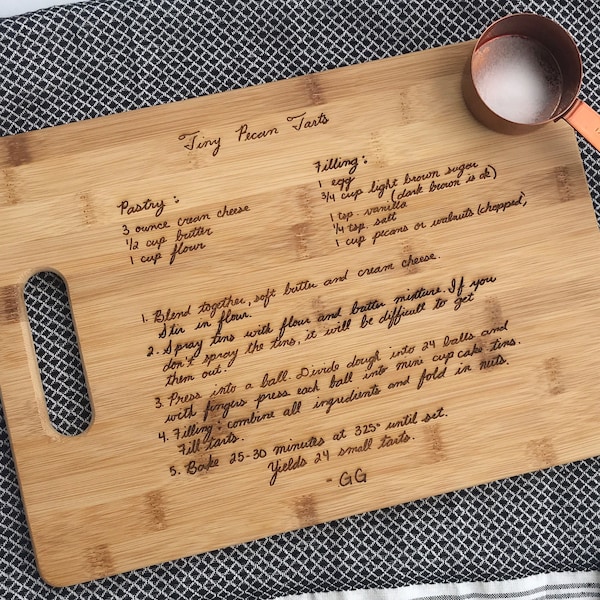 Tiny Pecan Tarts
Pastry:
3 ounce cream cheese
1/2 cup butter
1 cup flour
Filling:
1 egg
3/4 cup light brown sugar
(dark brown is ok)
1 tsp. vanilla
1/4 tsp. salt
1 cup pecans or walnuts (chopped)
1. Blend together, soft butter and cream cheese.
Stir in flour.
2. Spray tins with flour and butter mixture. If you
don't spray the tins, it will be difficult to get
them out.
3. Press into a ball. Divide dough into 24 balls and
with fingers press each ball into mini cupcake tins.
4. Filling: combine all ingredients and fold in nuts.
Fill tarts.
5. Bake 25-30 minutes at 325° until set.
Yields 24 small tarts.
- GG